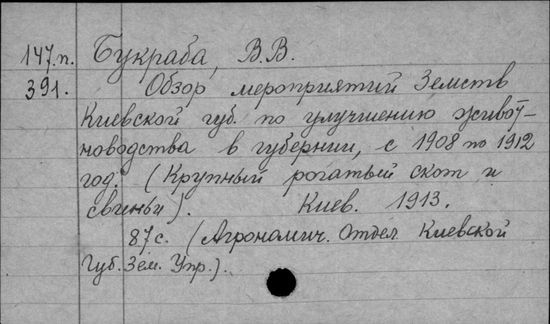 147.п. Букраба, В.В.
391. Обзор мероприятий Земств
Киевской губ. по улучшению живот-
новодства в губернии, с 1908 по 1912
год. (Крупный рогатый скот и
свиньи). Киев. 1913.
87с. (Агрономич. Отдел Киевской
Губ. Зем. Упр.).